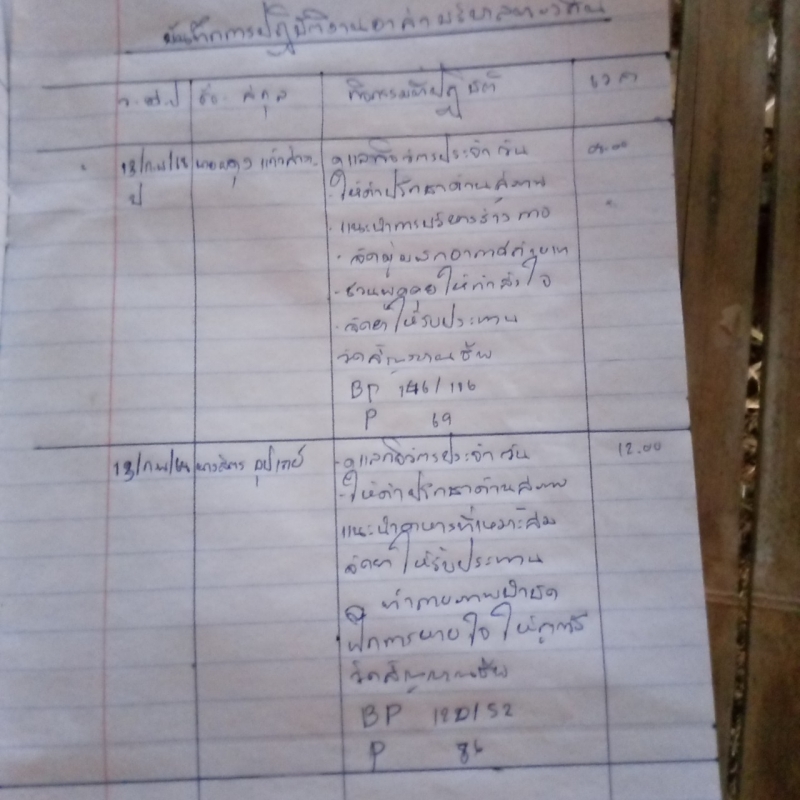 บันทึกการปฏิบัติงานอาสาบริบาลท้องถิ่น
ว.ด.ป ชื่อ. สกุล กิจกรรมที่ปฏิบัติ เวลา
13/กพ/ แก้ว ดูแลกิจวัตรประจำวัน
ให้คำปรึกษาด้านสุขภาพ
แนะนำการบริหารร่างกาย
ชวนพูดคุยให้กำลังใจ
จัดยาให้รับประทาน
วัดสัญญาณชีพ
BP 146/116
P 69
13/กพ/ ดูแลกิจวัตรประจำวัน 12.00
- ให้คำปรึกษาด้านสุขภาพ
แนะนำอาหารที่เหมาะสม
จัดยาให้รับประทาน
ทำกายภาพบำบัด
ฝึกการหายใจให้ถูกวิธี
วัดสัญญาณชีพ
BP 120/52
P 86